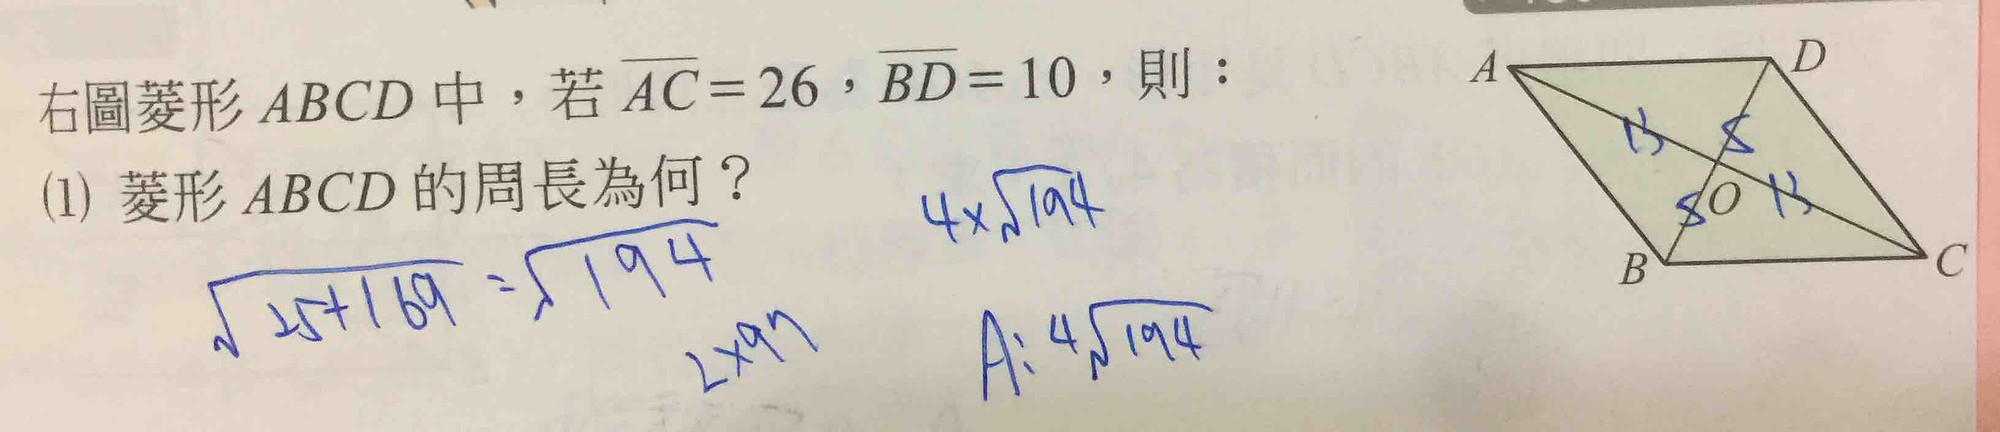 右圖菱形 ABCD 中，若 AC = 26，BD = 10，則：
(1) 菱形 ABCD 的周長為何？
√25+169 = √194
2×97
4×√194
A: 4√194
A
D
13
5
5
O
13
B
C